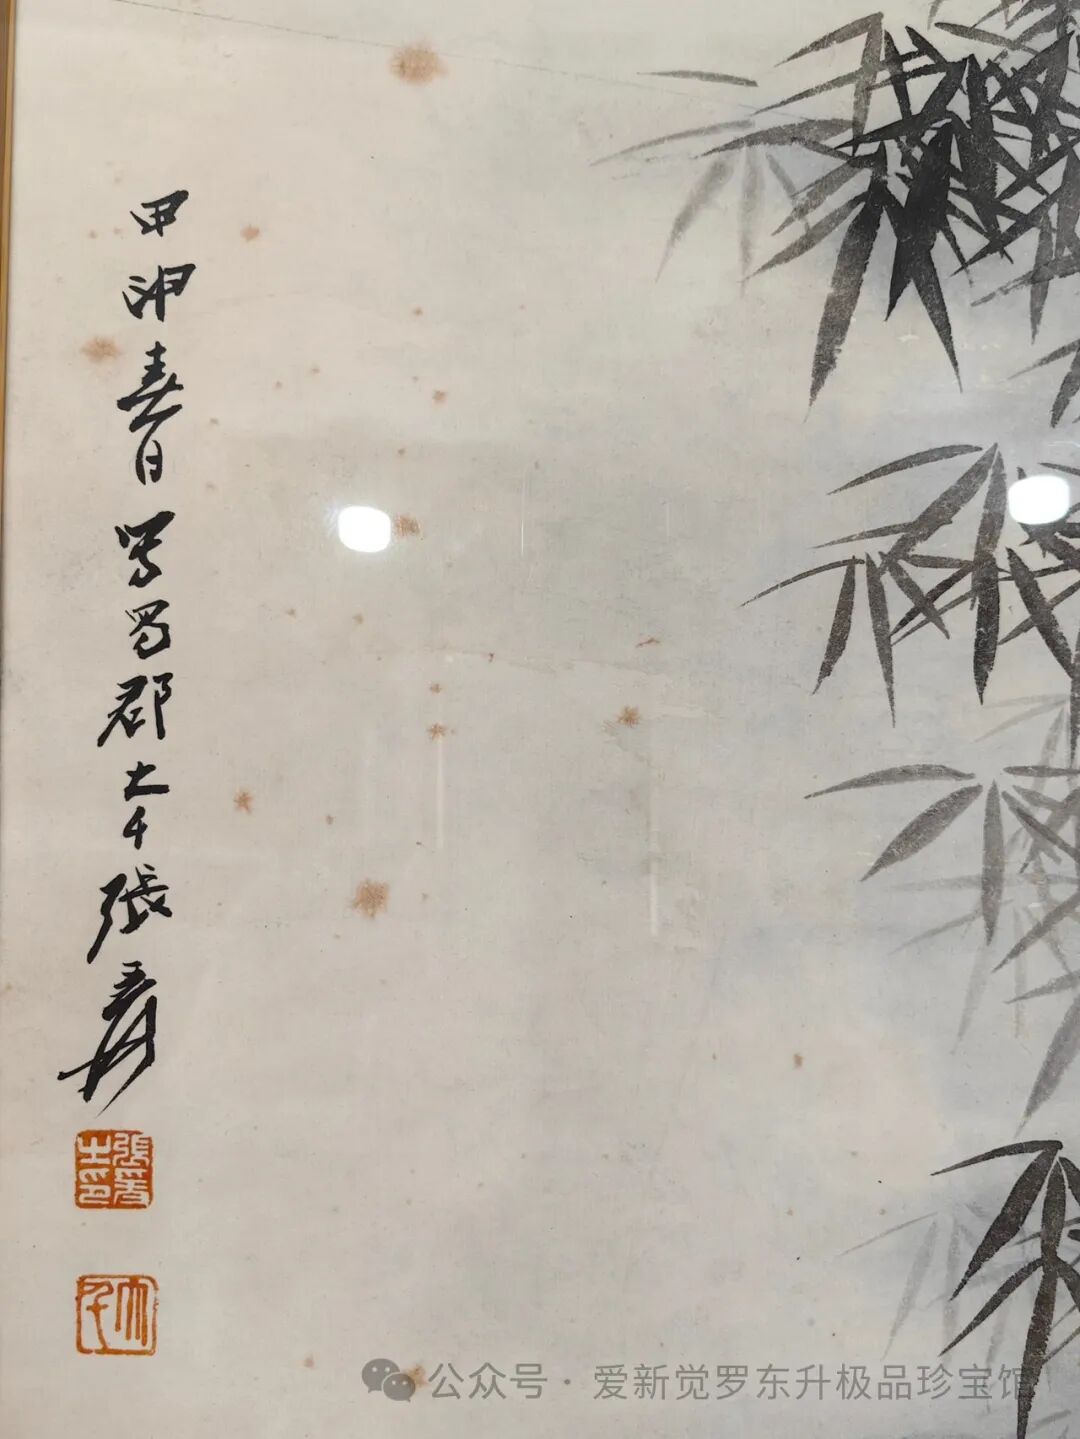 甲申春日写蜀郡大千張爰
張爰之印
大千
公众号·爱新觉罗东升极品珍宝馆